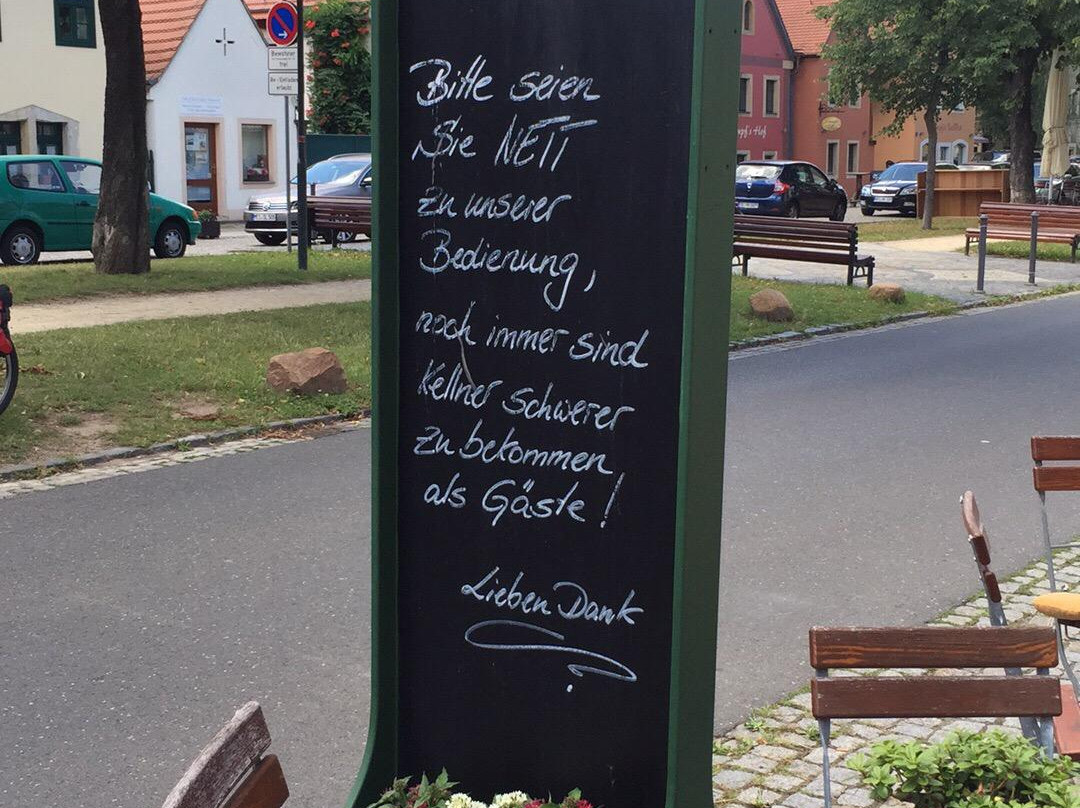 Bitte seien
Sie NETT
zu unserer
Bedienung,
noch immer sind
Kellner schwerer
zu bekommen
als Gäste!
Lieben Dank
Bewohner
frei